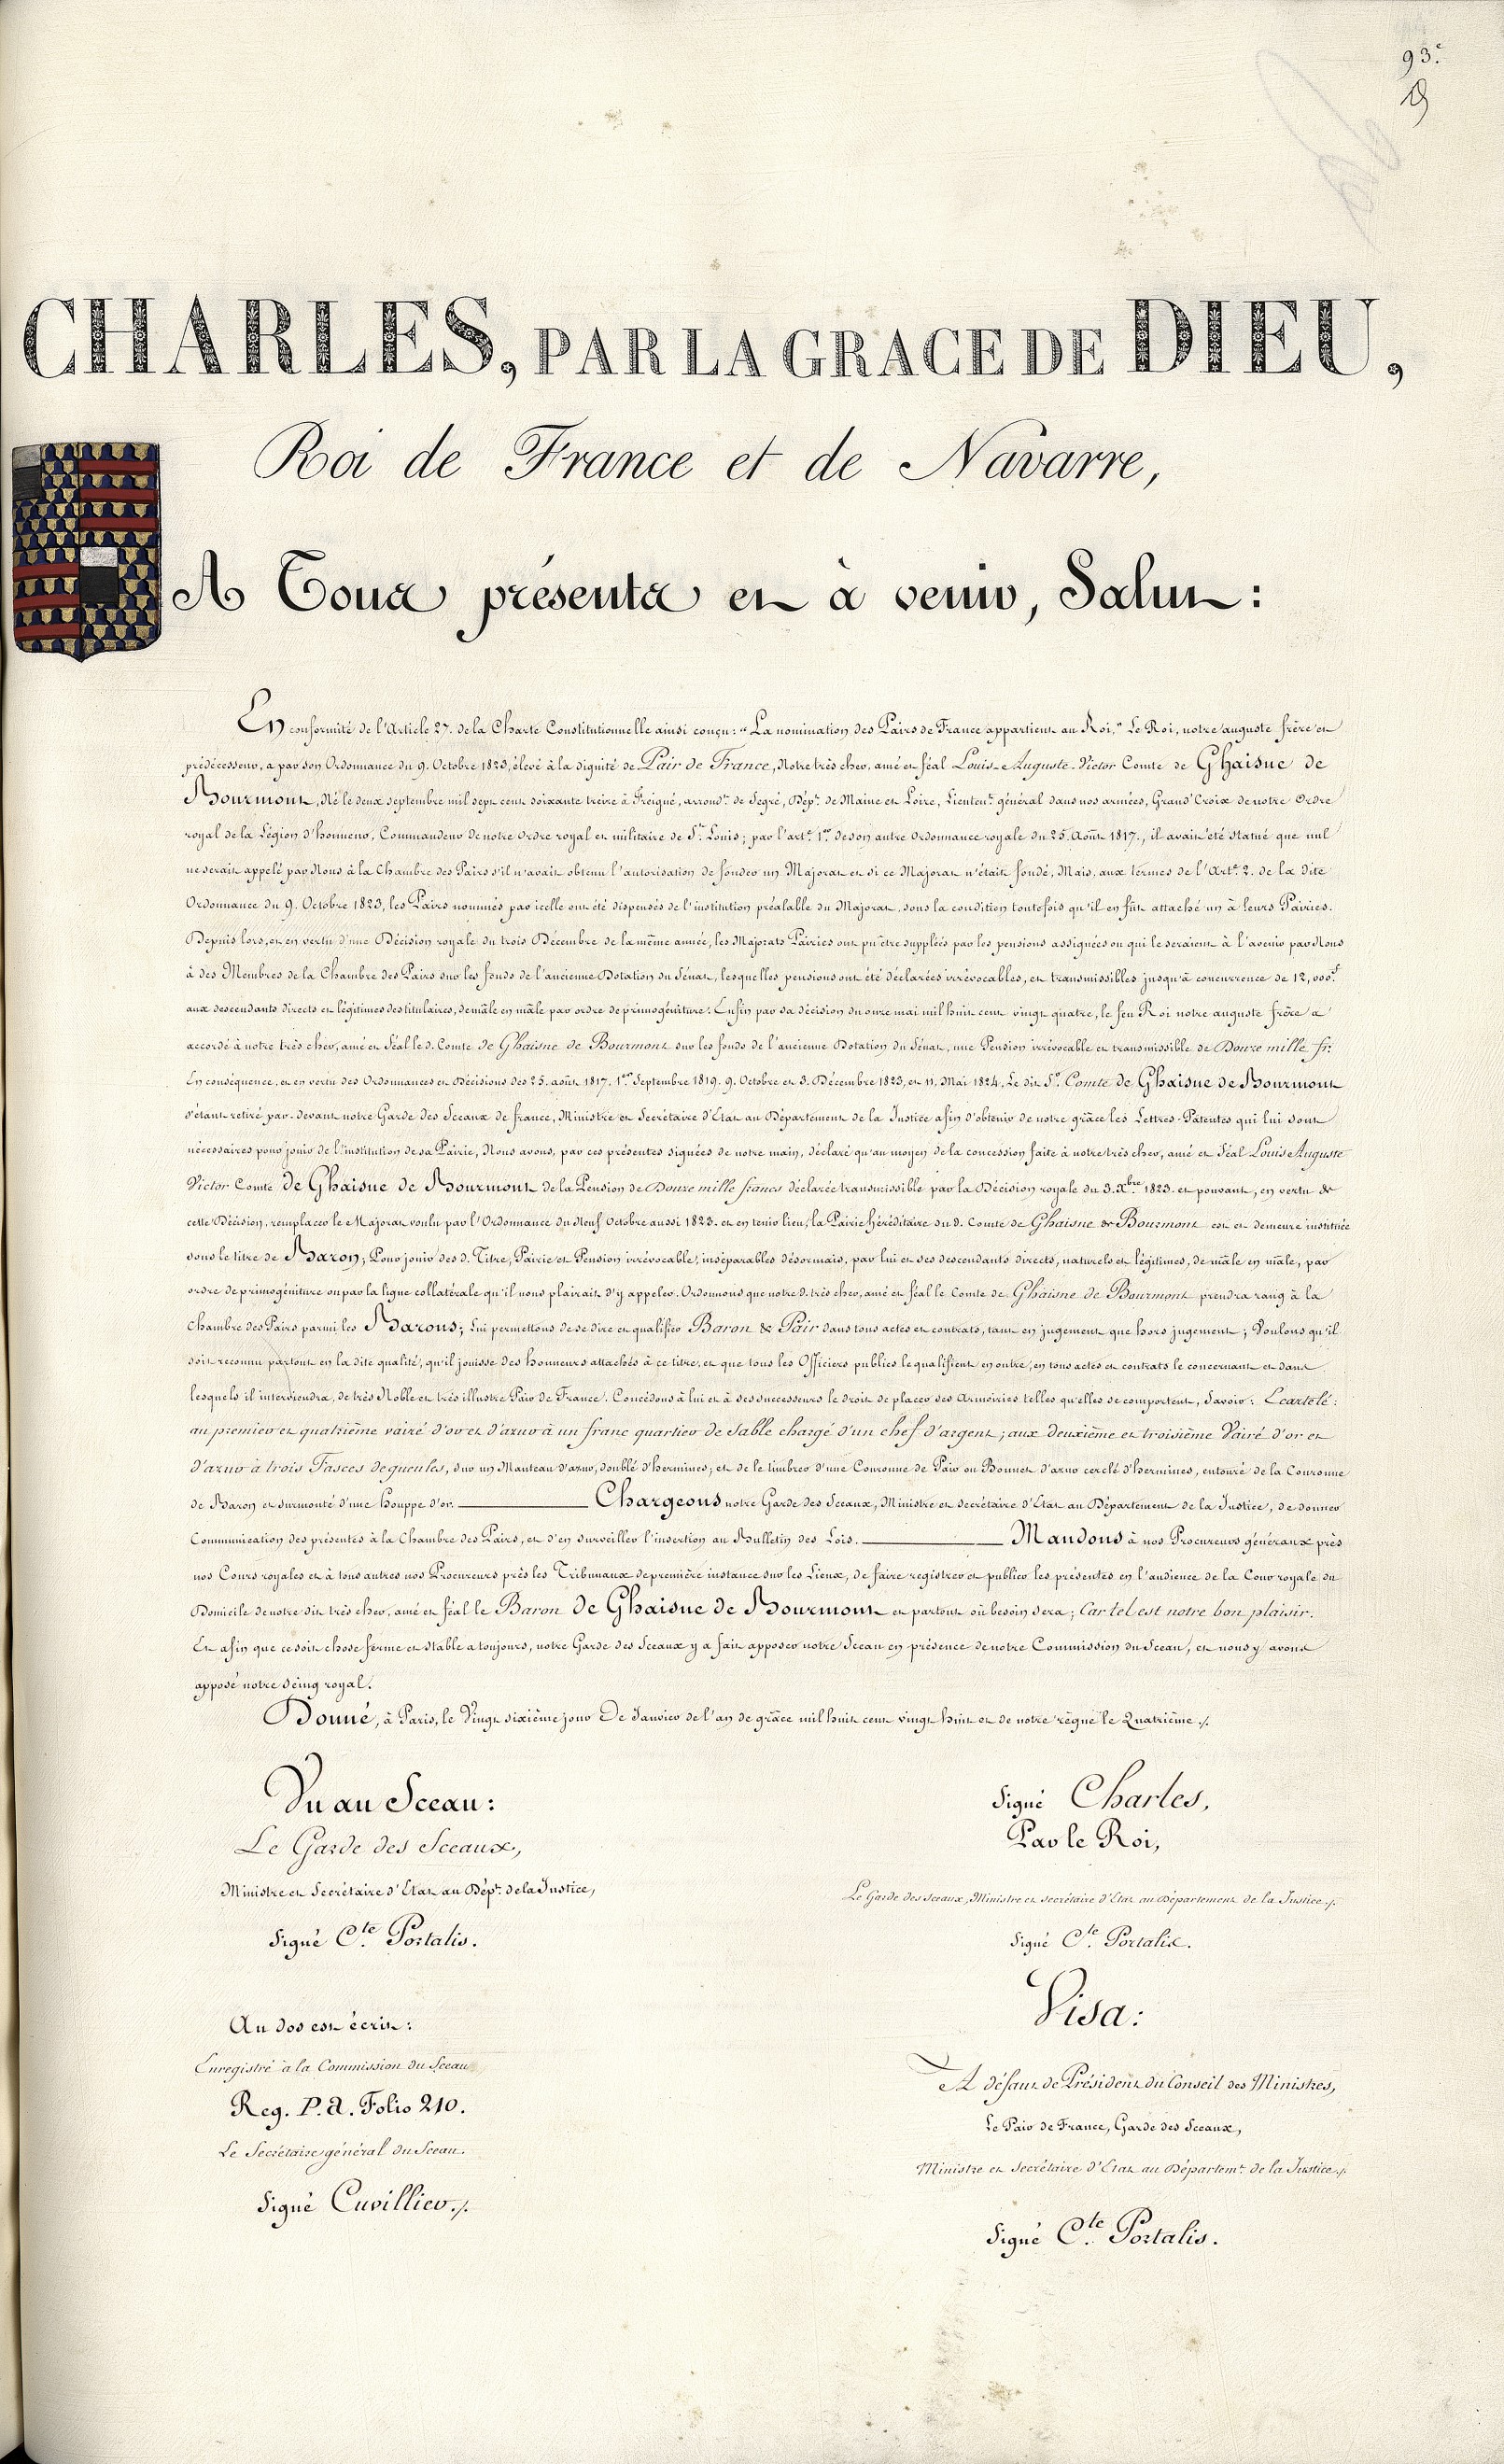 93.e
CHARLES, PAR LA GRACE DE DIEU,
Roi de France et de Navarre,
A Tous présents et à venir, Salut :
En conformité de l'Article 27. de la Charte Constitutionnelle ainsi conçu : " La nomination des Pairs de France appartient au Roi, " Le Roi, notre auguste frère et
prédécesseur, a par son Ordonnance du 9. Octobre 1823, élevé à la dignité de Pair de France, Notre très cher, amé et féal Louis-Auguste-Victor Comte de Ghaisne de
Bourmont, Né le deux septembre mil sept cent soixante treize à Freigné, arrond.t de Segré, Dép.t de Maine et Loire, Lieuten.t général dans nos armées, Grand'Croix de notre Ordre
royal de la Légion d'honneur, Commandeur de notre Ordre royal et militaire de S.t Louis ; par l'art.e 1.er de son autre Ordonnance royale du 25. Août 1817., il avait été statué que nul
ne serait appelé par Nous à la Chambre des Pairs s'il n'avait obtenu l'autorisation de fonder un Majorat et si ce Majorat n'était fondé, Mais, aux termes de l'Art.e 2. de la dite
Ordonnance du 9. Octobre 1823, les Pairs nommés par icelle ont été dispensés de l'institution préalable du Majorat, sous la condition toutefois qu'il en fût attaché un à leurs Pairies.
Depuis lors, et en vertu d'une Décision royale du trois Décembre de la même année, les Majorats Pairies ont pu être suppléés par les pensions assignées ou qui le seraient à l'avenir par Nous
à des Membres de la Chambre des Pairs sur les fonds de l'ancienne Dotation du Sénat, lesquelles pensions ont été déclarées irrévocables, et transmissibles jusqu'à concurrence de 12,000.f
aux descendants directs et légitimes des titulaires, de mâle en mâle par ordre de primogéniture. Enfin par sa décision du onze mai mil huit cent vingt quatre, le feu Roi notre auguste frère a
accordé à notre très cher, amé et féal le d. Comte de Ghaisne de Bourmont sur les fonds de l'ancienne Dotation du Sénat, une Pension irrévocable et transmissible de Douze mille fr.
En conséquence, et en vertu des Ordonnances et Décisions des 25. août 1817. 1.er Septembre 1819. 9. Octobre et 3. Décembre 1823, et 11. Mai 1824. Le dit S.r Comte de Ghaisne de Bourmont
s'étant retiré par-devant notre Garde des Sceaux de france, Ministre et Secrétaire d'Etat au Département de la Justice afin d'obtenir de notre grâce les Lettres-Patentes qui lui sont
nécessaires pour jouir de l'institution de sa Pairie, Nous avons, par ces présentes signées de notre main, déclaré qu'au moyen de la concession faite à notre très cher, amé et féal Louis Auguste
Victor Comte de Ghaisne de Bourmont de la Pension de Douze mille francs déclarée transmissible par la Décision royale du 3. X.bre 1823. et pouvant, en vertu de
cette Décision, remplacer le Majorat voulu par l'Ordonnance du Neuf Octobre aussi 1823. et en tenir lieu, la Pairie héréditaire du d. Comte de Ghaisne de Bourmont est et demeure instituée
sous le titre de Baron ; Pour jouir des d. Titre, Pairie et Pension irrévocable, inséparables désormais, par lui et ses descendants directs, naturels et légitimes, de mâle en mâle, par
ordre de primogéniture ou par la ligne collatérale qu'il nous plairait d'y appeler. Ordonnons que notre d. très cher, amé et féal le Comte de Ghaisne de Bourmont prendra rang à la
Chambre des Pairs parmi les Barons ; Lui permettons de se dire et qualifier Baron & Pair dans tous actes et contrats, tant en jugement que hors jugement ; Voulons qu'il
soit reconnu partout en la dite qualité, qu'il jouisse des honneurs attachés à ce titre, et que tous les Officiers publics le qualifient en outre, en tous actes et contrats le concernant et dans
lesquels il interviendra, de très Noble et très illustre Pair de France. Concédons à lui et à ses successeurs le droit de placer ses Armoiries telles qu'elles se comportent, Savoir : Ecartelé :
au premier et quatrième vairé d'or et d'azur à un franc quartier de Sable chargé d'un chef d'argent ; aux deuxième et troisième Vairé d'or et
d'azur à trois Fasces de gueules, sur un Manteau d'azur, doublé d'hermines ; et de le timbrer d'une Couronne de Pair ou Bonnet d'azur cerclé d'hermines, entouré de la Couronne
de Baron et surmonté d'une houppe d'or. Chargeons notre Garde des Sceaux, Ministre et Secrétaire d'Etat au Département de la Justice, de donner
Communication des présentes à la Chambre des Pairs, et d'en surveiller l'insertion au Bulletin des Lois. Mandons à nos Procureurs généraux près
nos Cours royales et à tous autres nos Procureurs près les Tribunaux de première instance sur les Lieux, de faire registrer et publier les présentes en l'audience de la Cour royale du
Domicile de notre dit très cher, amé et féal le Baron de Ghaisne de Bourmont et partout où besoin sera ; Car tel est notre bon plaisir.
Et afin que ce soit chose ferme et stable à toujours, notre Garde des Sceaux y a fait apposer notre Sceau en présence de notre Commission du Sceau, et nous y avons
apposé notre Seing royal.
Donné, à Paris, le Vingt sixième jour De Janvier de l'an de grâce mil huit cent vingt huit et de notre règne le Quatrième ./.
Vu au Sceau :
Le Garde des Sceaux,
Ministre et Secrétaire d'Etat au Dép.t de la Justice,
Signé C.te Portalis.
Au dos est écrit :
Enregistré à la Commission du Sceau
Reg. P.A. Folio 210.
Le Secrétaire général du Sceau.
Signé Cuvillier ./.
Signé Charles,
Par le Roi,
Le Garde des Sceaux, Ministre et Secrétaire d'Etat au Département de la Justice ./.
Signé C.te Portalis.
Visa :
A défaut de Président du Conseil des Ministres,
Le Pair de France, Garde des Sceaux,
Ministre et Secrétaire d'Etat au Départem.t de la Justice ./.
Signé C.te Portalis.